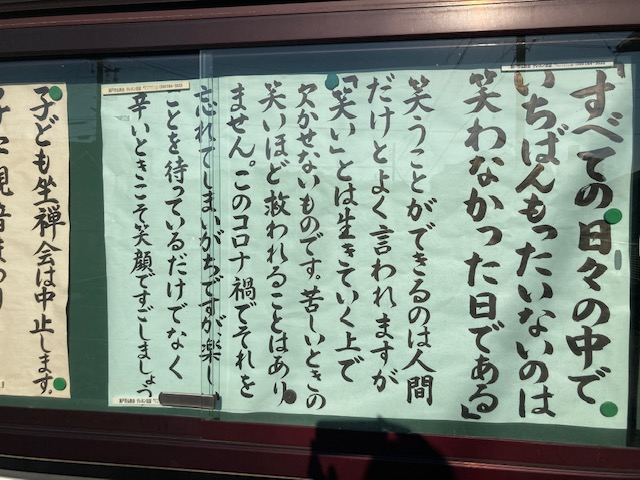 「すべての日々の中で
いちばんもったいないのは
笑わなかった日である」
笑うことができるのは人間
だけとよく言われますが
「笑い」とは生きていく上で
欠かせないものです。苦しいときの
笑いほど救われることはあり
ません。このコロナ禍でそれを
忘れてしまいがちですが楽し
ことを待っているだけでなく
辛いときこそ笑顔ですごしましょう
子ども坐禅会は中止します。